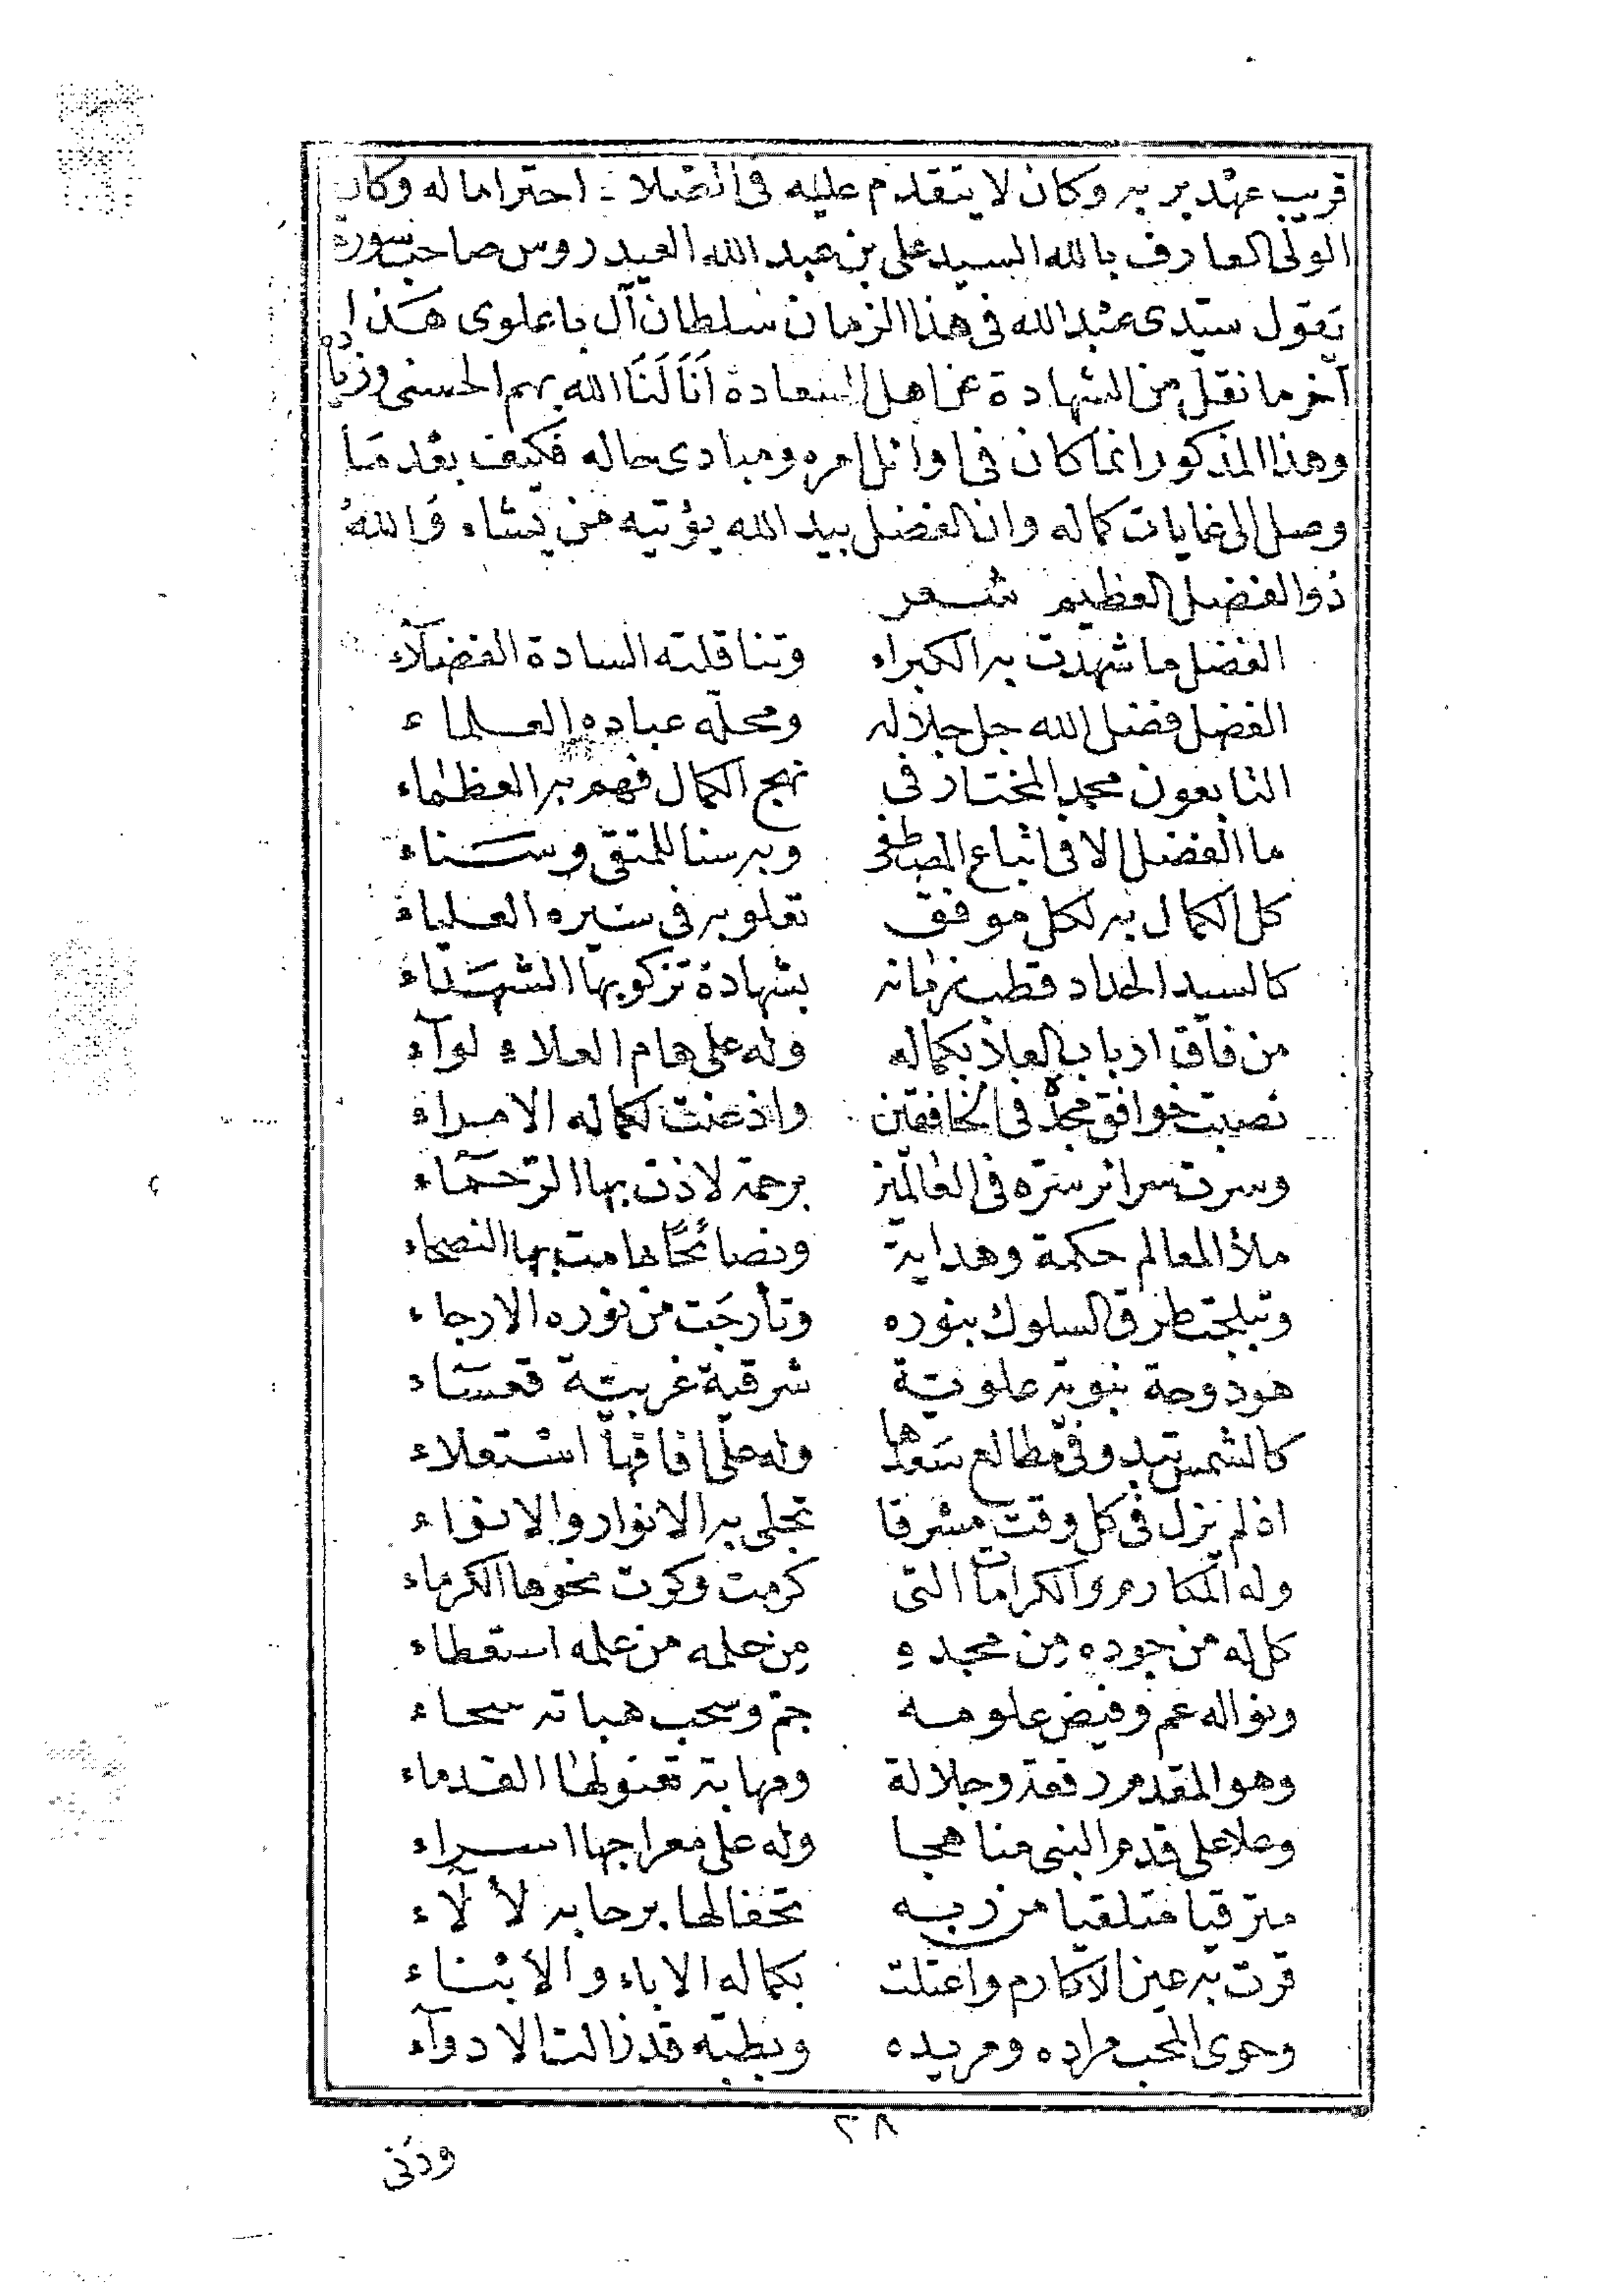 قريب عهد بربه وكان لا يتقدم عليه فى الصلاة احتراما له وكان
الولى العارف بالله السيد على بن عبد الله العيدروس صاحب سورة
يقول سيّدى عبد الله فى هذا الزمان سلطان آل باعلوى هَذا
آخر ما نقل من الشهادة عن اهل السعادة اَنَا لَنَا الله بهم الحسنى وزيادة
وهذا المذكور انما كان فى اوائل امره ومبادى حاله فكيف بعْد مَا
وصل الى غايات كماله وان الفضل بيد الله يؤتيه من يشاء وَاللهُ
ذو الفضل العظيم شعر
الفضل ما شهدت به الكبراء وتناقلته السادة الفضلآء
الفضل فضل الله جل جلاله ومحلّه عباده العلماء
التابعون محمد المختار فى نهج الكمال فهم به العظماء
ما الفضل الا فى اتباع المصطفى وبه سنا للمتقى وسَناء
كل الكمال به لكل موفق تعلو به فى سيره العلياء
كالسيد الحداد قطب زمانه بشهادة تزكو بها الشهَداء
من فاق ارباب العلا بكماله وله على هام العلاء لوآء
نصبت خوافق مجده فى الخافقين واذعنت لكماله الامراء
وسرت سرائر سرّه فى العالمين برحمة لاذت بها الرّحَمَاء
ملأ المعالم حكمة وهداية ونصائحًا هامت بها النصحاء
وتبلجت طرق السلوك بنوره وتأرجَت من نوره الارجاء
هو دوحة نبوية علويّة شرقية غربيّة قعسَاء
كالشمس تبدو فى مطالع سَعدها وله على افاقها استعلاء
اذ لم يزل فى كل وقت مشرقا تجلى به الانوار والانواء
وله المكارم والكرامات التى كرمت وكرت نحوها الكرماء
كل له من جوده مِن مجدهِ مِن حلمه من علمه استعطاء
ونواله عم وفيض علومه جمّ وسحب هباته سحاء
وهو المقدم رفعة وجلالة ومهابة تعنو لها القدماء
وعلا على قدم النبى مناهجا وله على معراجها اسراء
مترقيا متلقيا من ربه تحفا لها برحابه لألآء
قرت به عين الاكارم واعتلت بكماله الاباء والابناء
وحوى المحب مراده ومريده وبطبّه قد زالت الادوآء
٢٨